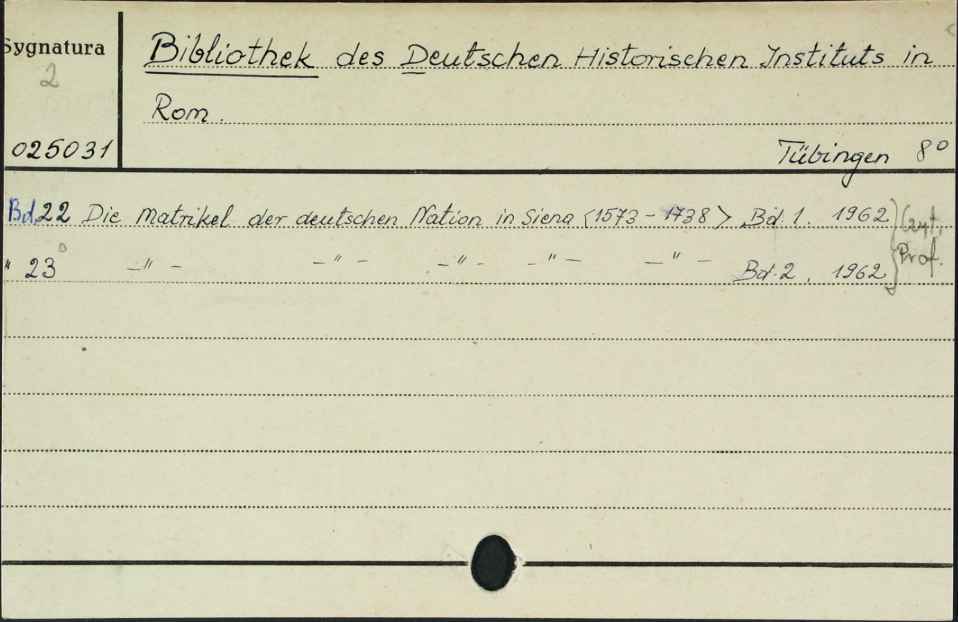 Sygnatura
2
025031
Bibliothek des Deutschen Historischen Instituts in
Rom.
Tübingen 8°
Bd. 22 Die Matrikel der deutschen Nation in Siena <1573 - 1738> Bd. 1. 1962 } Czyt.
" 23 -"- -"- -"- -"- -"- Bd. 2. 1962 } Prof.